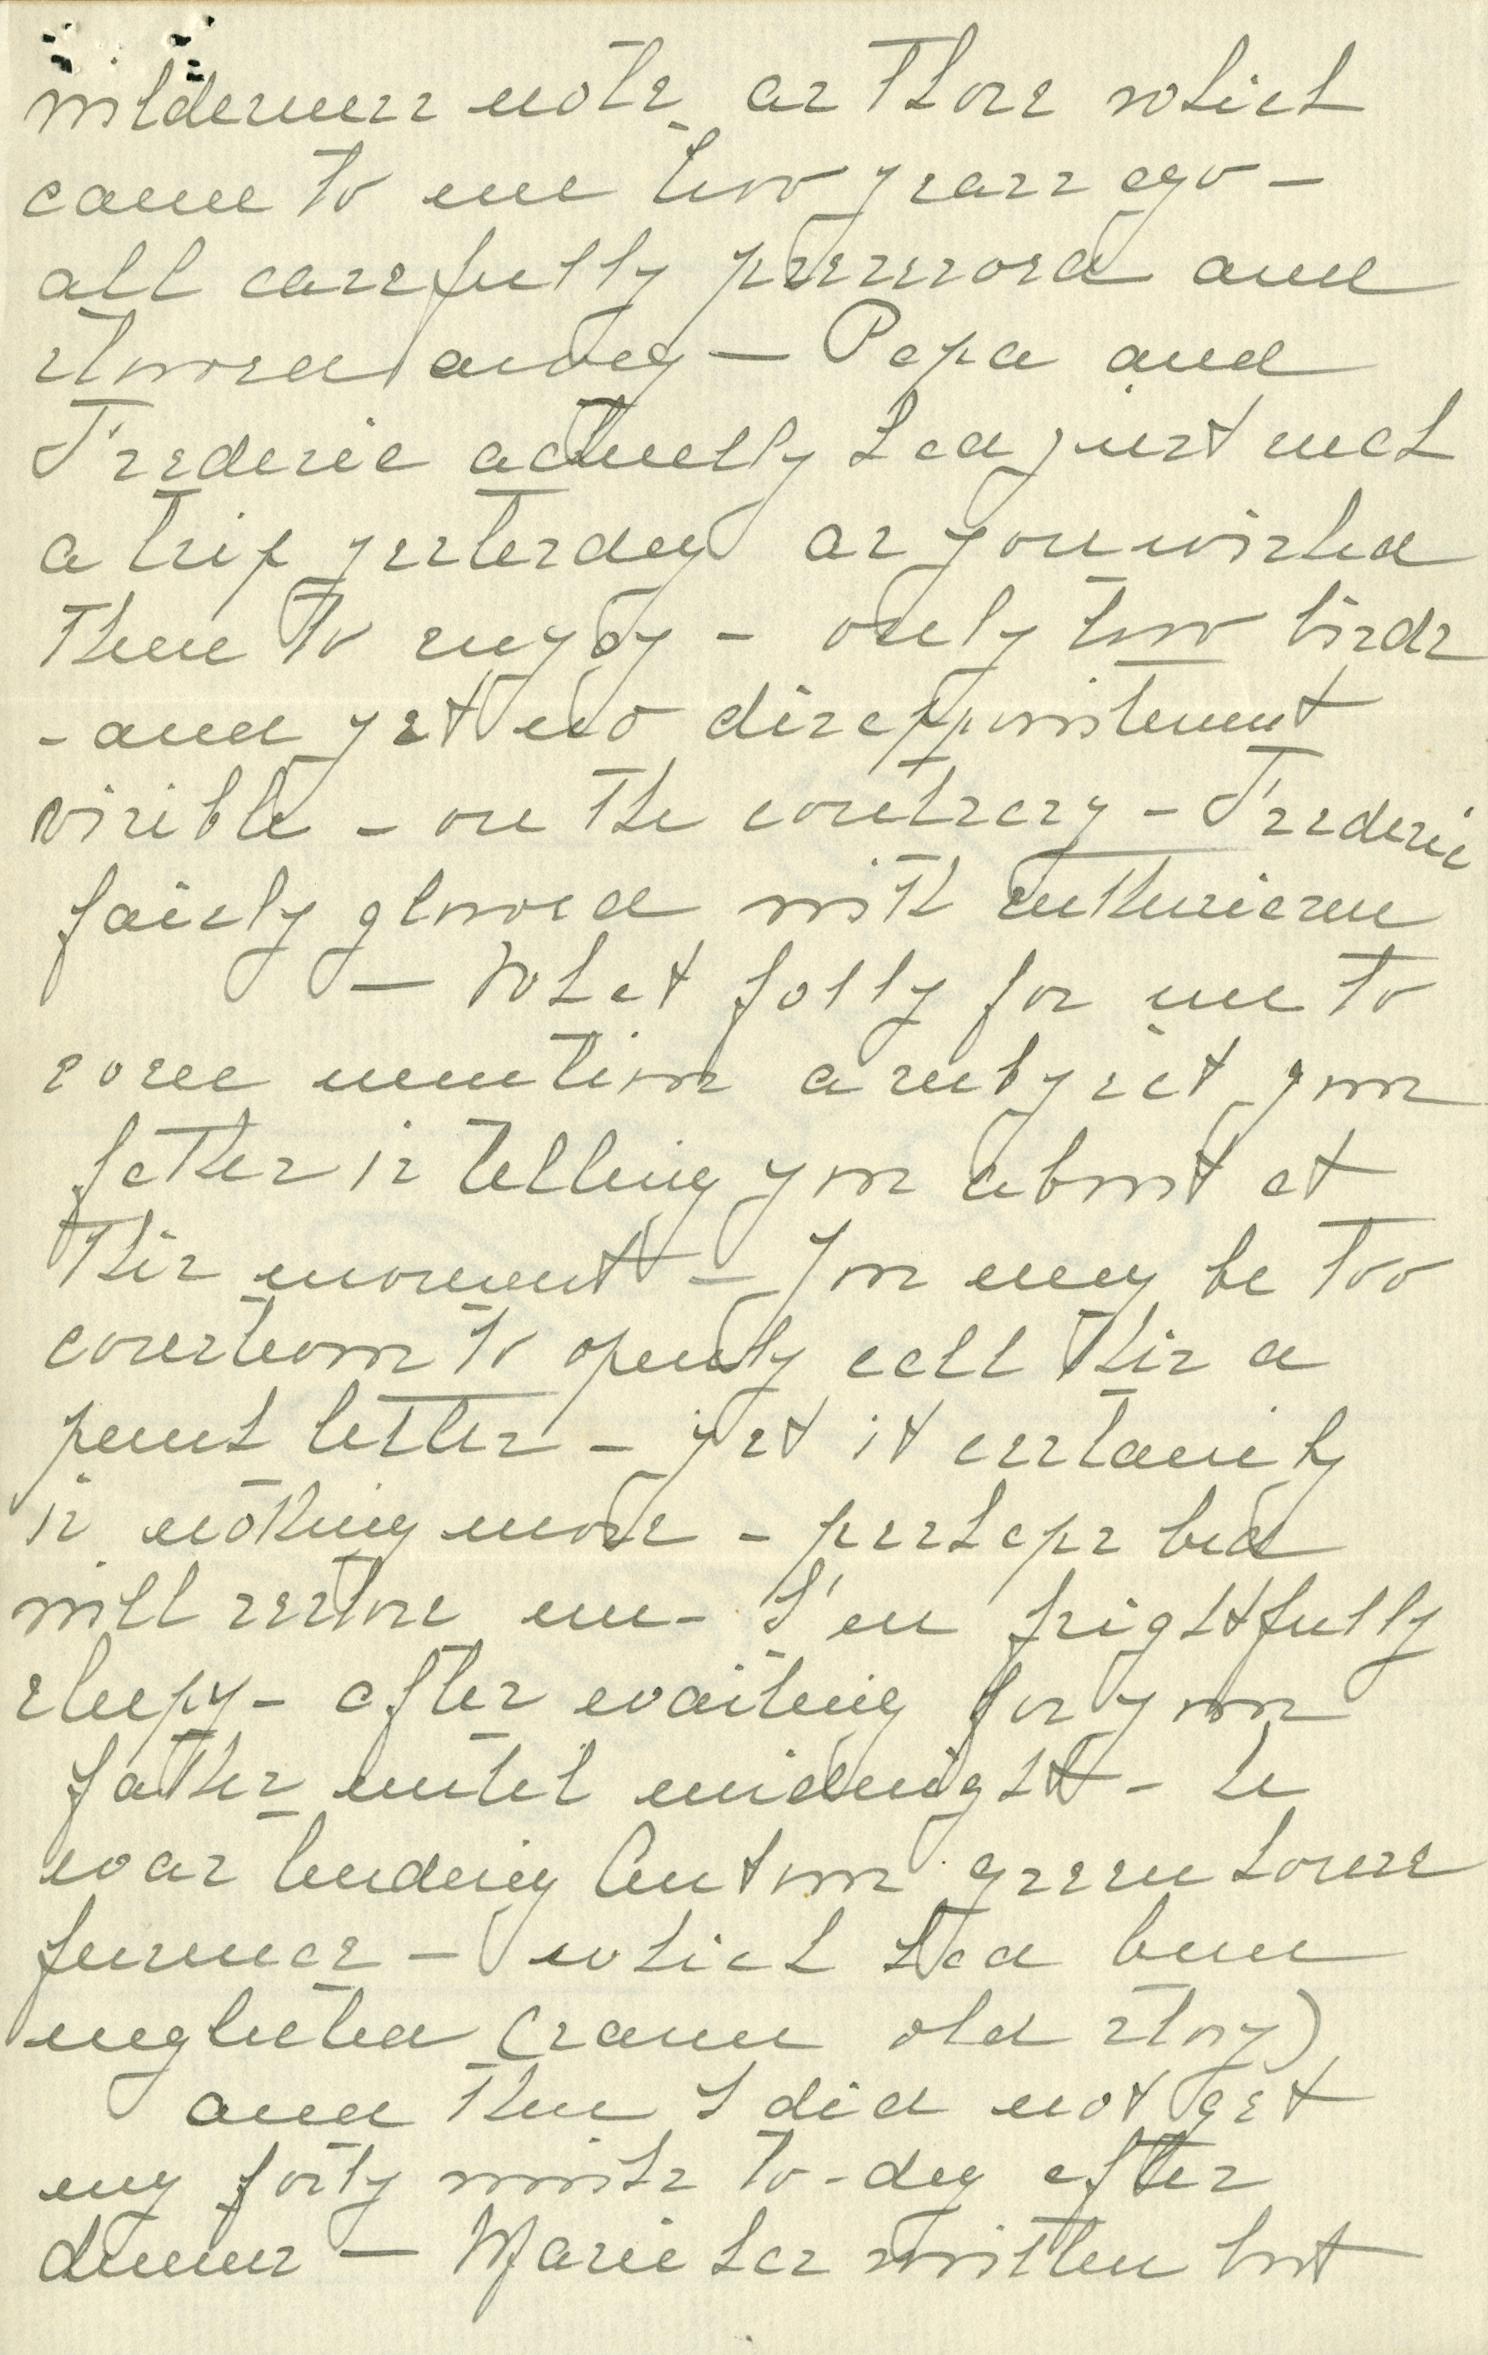 wilderness note as those which
came to me two years ago –
all carefully preserved and
stowed away – Papa and
Frederic actually had just such
a trip yesterday as you wished
them to enjoy – only two birds
– and yet no disappointment
visible – on the contrary – Frederic
fairly glowed with enthusiasm
– What folly for me to
even mention a subject your
father is telling you about at
this moment – You may be too
courteous to openly call this a
punk letter – yet it certainly
is nothing more – perhaps bed
will restore me – I'm frightfully
sleepy – after waiting for your
father until midnight – he
was tending Anton's greenhouse
furnace – which had been
neglected (same old story)
and then I did not get
my forty winks to-day after
dinner – Marie has written but